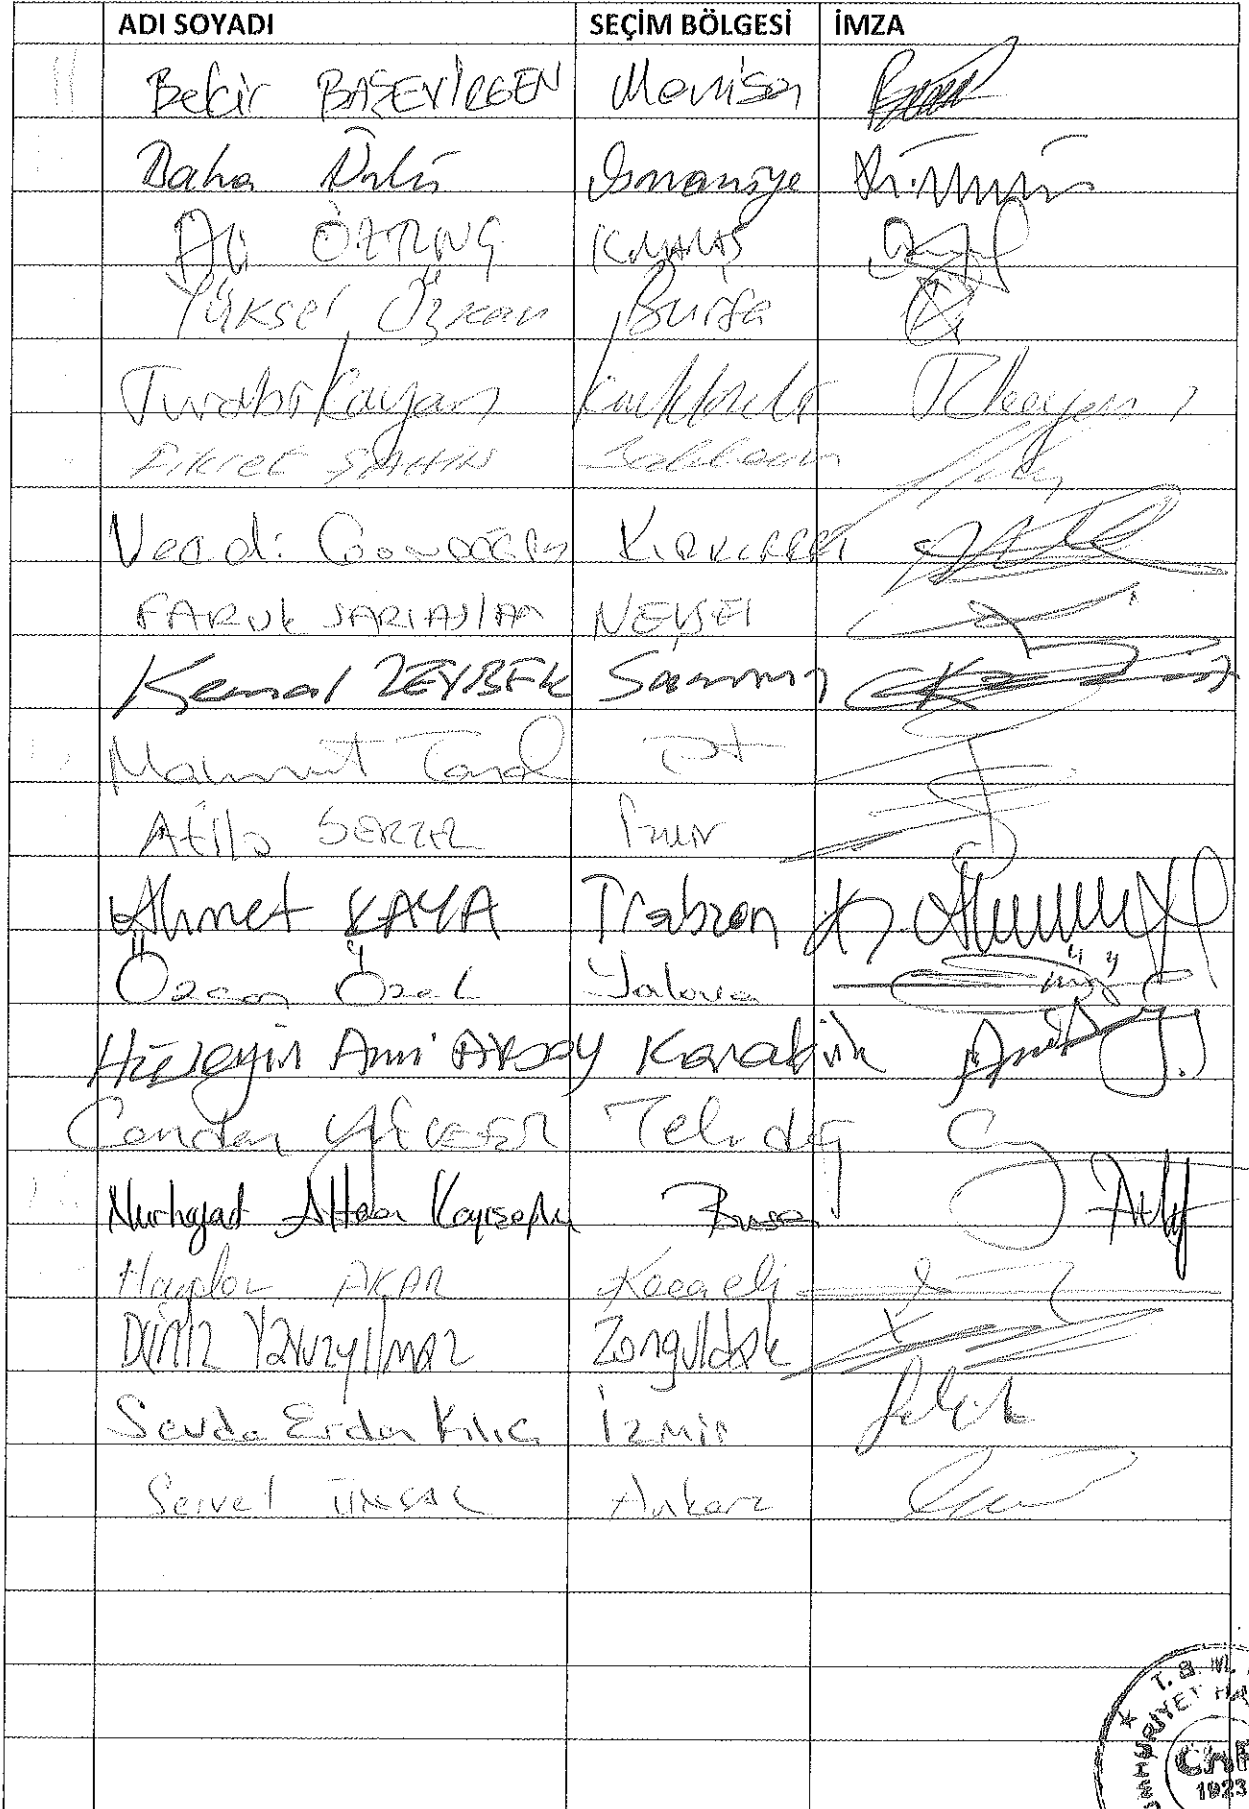 ADI SOYADI SEÇİM BÖLGESİ İMZA
Bekir BAŞEVİRGEN Manisa
Baha Ünlü Osmaniye
Ali ÖZTUNÇ K.MARAŞ
Yüksel Özkan Bursa
Turabi Kayan Kırklareli
Fikret ŞAHİN Balıkesir
Vecdi Gündoğdu KIRKLARELİ
FARUK SARIASLAN NEVŞEİ
Kemal ZEYBEK Samsun
Mahmut Tanal
Atila SERTEL İzmir
Ahmet KAYA Trabzon
Özcan Özel Yalova
Hüseyin Avni AKSOY Karabük
Candan YÜCEER Tekirdağ
Nurhayat Altaca Kayışoğlu Bursa
Haydar AKAR Kocaeli
DENİZ YAVUZYILMAZ Zonguldak
Sevda Erdan Kılıç İzmir
Servet ÜNSAL Ankara
T. B. M.
CHP
1923